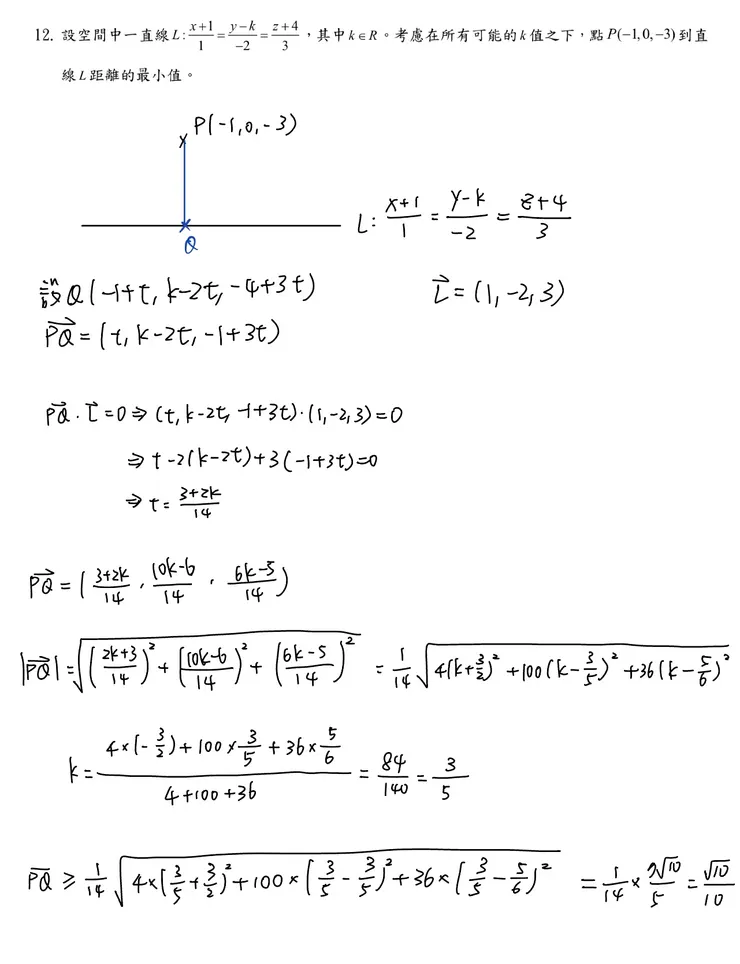 12. 設空間中一直線 L: (x+1)/1 = (y−k)/−2 = (z+4)/3，其中 k∈R。考慮在所有可能的 k 值之下，點 P(−1,0,−3) 到直
線 L 距離的最小值。
P(-1,0,-3)
L: (x+1)/1 = (y-k)/-2 = (z+4)/3
Q
設 Q(-1+t, k-2t, -4+3t)
L⃗ = (1,-2,3)
PQ⃗ = (t, k-2t, -1+3t)
PQ⃗ · L⃗ = 0 ⇒ (t, k-2t, -1+3t)·(1,-2,3)=0
⇒ t-2(k-2t)+3(-1+3t)=0
⇒ t = (3+2k)/14
PQ⃗ = ((3+2k)/14, (10k-6)/14, (6k-5)/14)
|PQ⃗| = √(((2k+3)/14)² + ((10k-6)/14)² + ((6k-5)/14)²) = 1/14 √(4(k+3/2)² + 100(k-3/5)² + 36(k-5/6)²)
k = (4×(-3/2)+100×3/5+36×5/6)/(4+100+36) = 84/140 = 3/5
PQ ≥ 1/14 √(4×(3/5+3/2)² + 100×(3/5-3/5)² + 36×(3/5-5/6)²) = 1/14 × 7√10/5 = √10/10